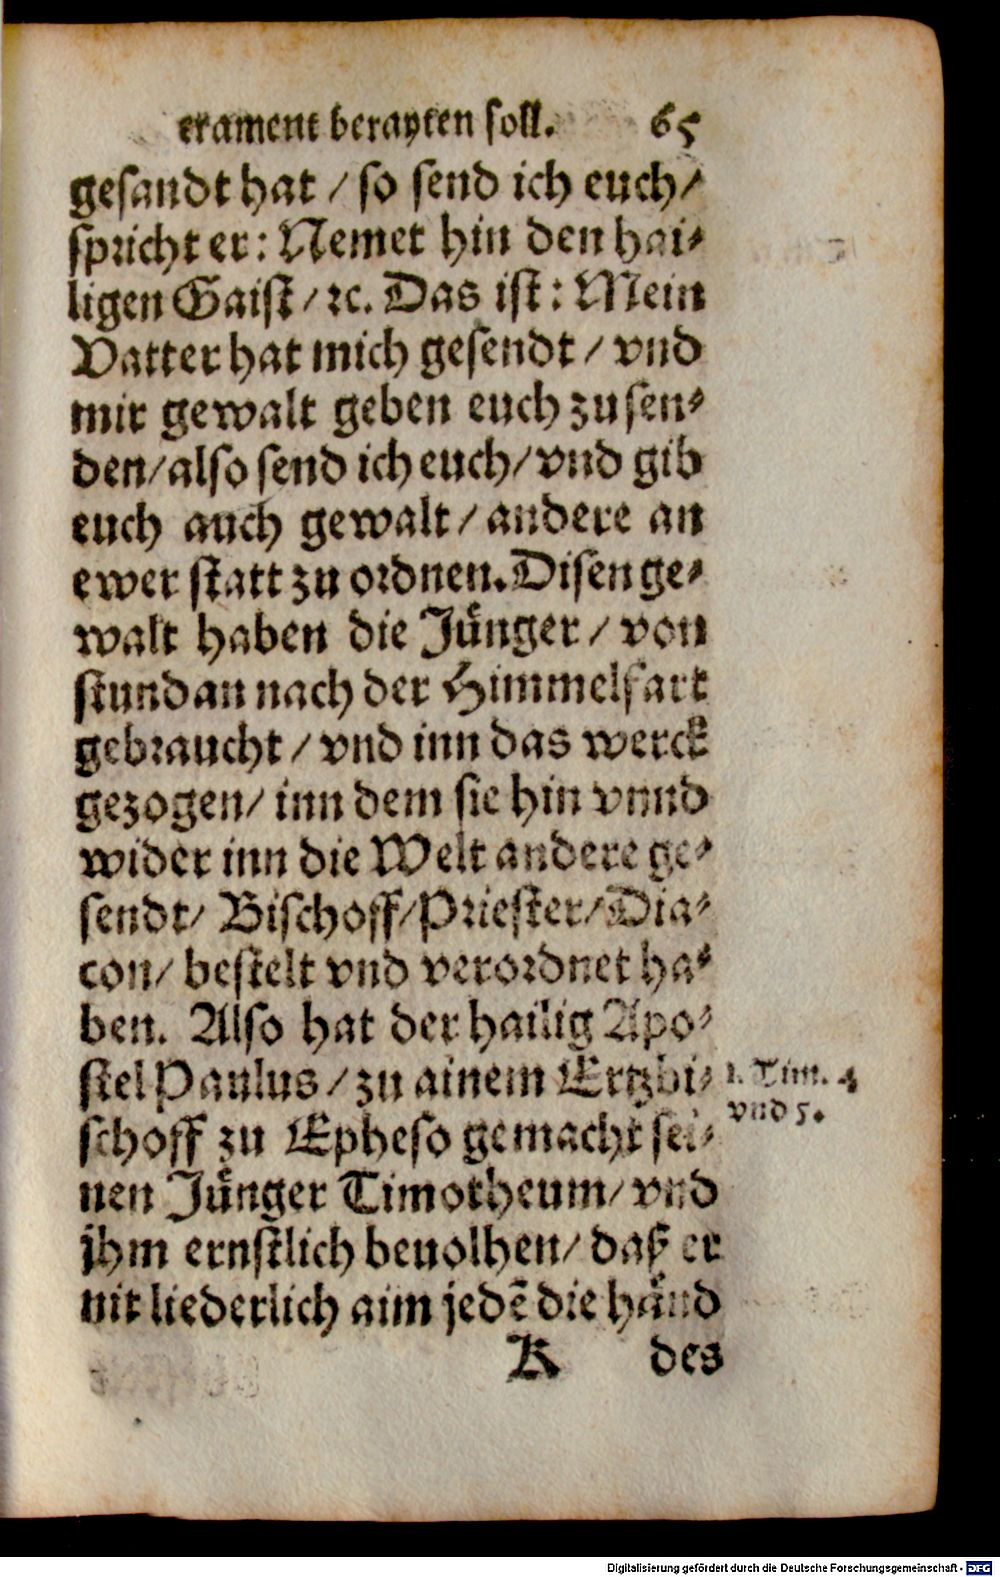 crament berayten soll. 65
gesandt hat / so send ich euch /
spricht er: Nemet hin den hai⸗
ligen Gaist / ꝛc. Das ist: Mein
Vatter hat mich gesendt / vnd
mir gewalt geben euch zu sen⸗
den / also send ich euch / vnd gib
euch auch gewalt / andere an
ewer statt zu ordnen. Disen ge⸗
walt haben die Jünger / von
stund an nach der Himmelfart
gebraucht / vnd inn das werck
gezogen / inn dem sie hin vnnd
wider inn die Welt andere ge⸗
sendt / Bischoff / Priester / Dia⸗
con / bestelt vnd verordnet ha⸗
ben. Also hat der hailig Apo⸗
stel Paulus / zu ainem Ertzbi⸗
schoff zu Epheso gemacht sei⸗
nen Jünger Timotheum / vnd
jhm ernstlich beuolhen / daß er
nit liederlich aim jedē die händ
K des
1. Tim. 4
vnd 5.
Digitalisierung gefördert durch die Deutsche Forschungsgemeinschaft - DFG